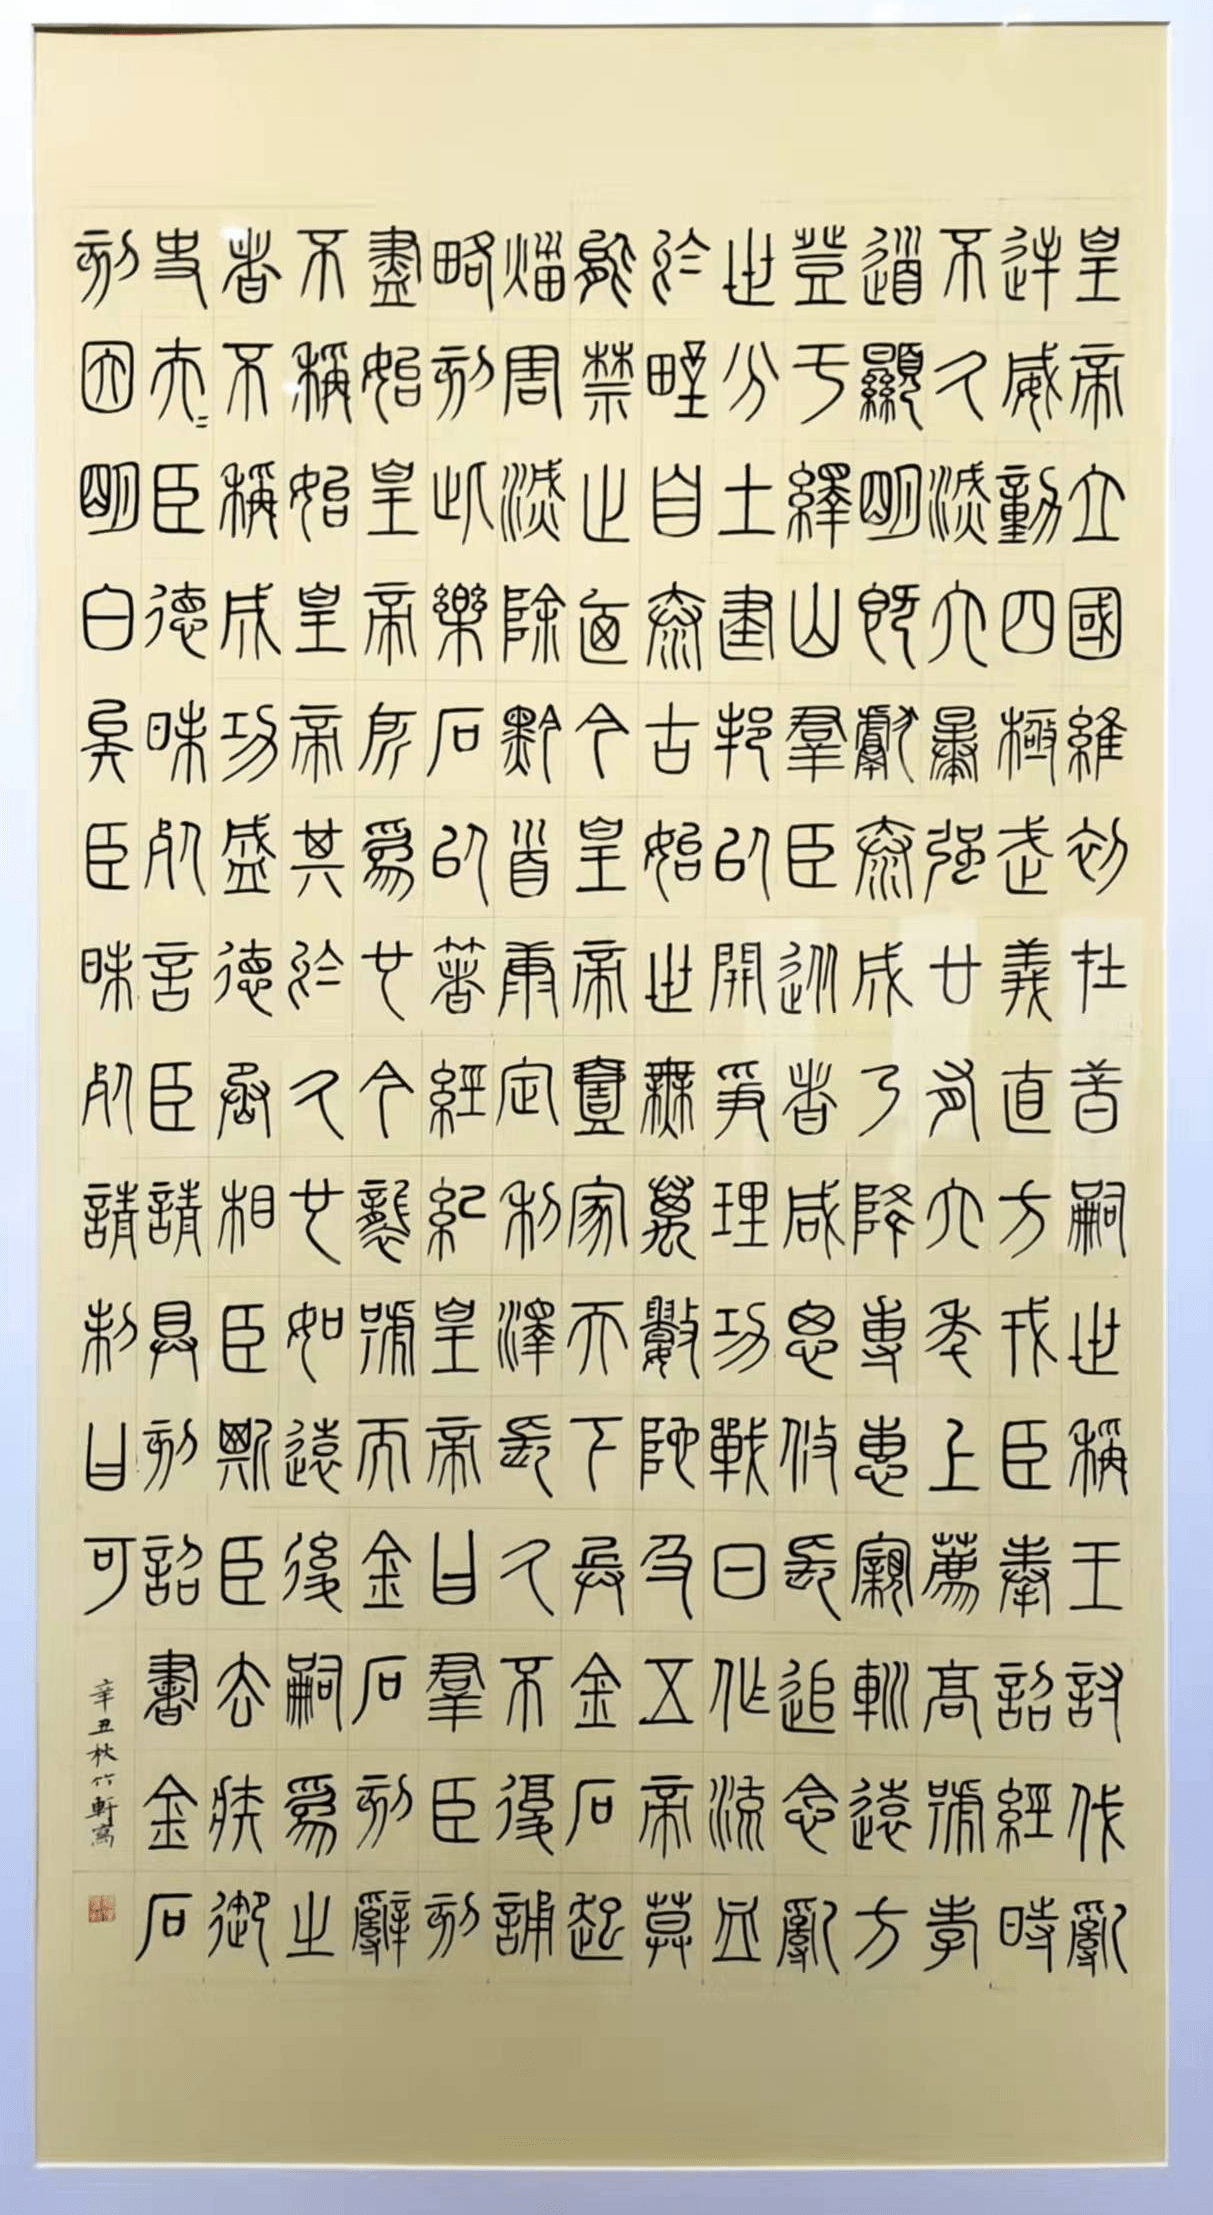 皇帝立國維初在昔嗣世稱王討伐亂
逆威動四極武義直方戎臣奉詔經時
不久滅六暴強廿有六年上薦高號孝
道顯明既獻泰成乃降專惠寴巡遠方
登于繹山羣臣從者咸思攸長追念亂
世分土建邦以開爭理功戰日作流血
於野自泰古始世無萬數陀及五帝莫
能禁止迺今皇帝壹家天下兵金石起
災害滅除黔首康定利澤長久不復誦
略刻此樂石以著經紀皇帝曰羣臣刻
盡始皇帝所為也今襲號而金石刻辭
不稱始皇帝其於久也如遠後嗣為之
者不稱成功盛德丞相臣斯臣去疾御
史夫〻臣德昧死言臣請具刻詔書金石
刻因明白矣臣昧死請制曰可
辛丑秋竹軒寫